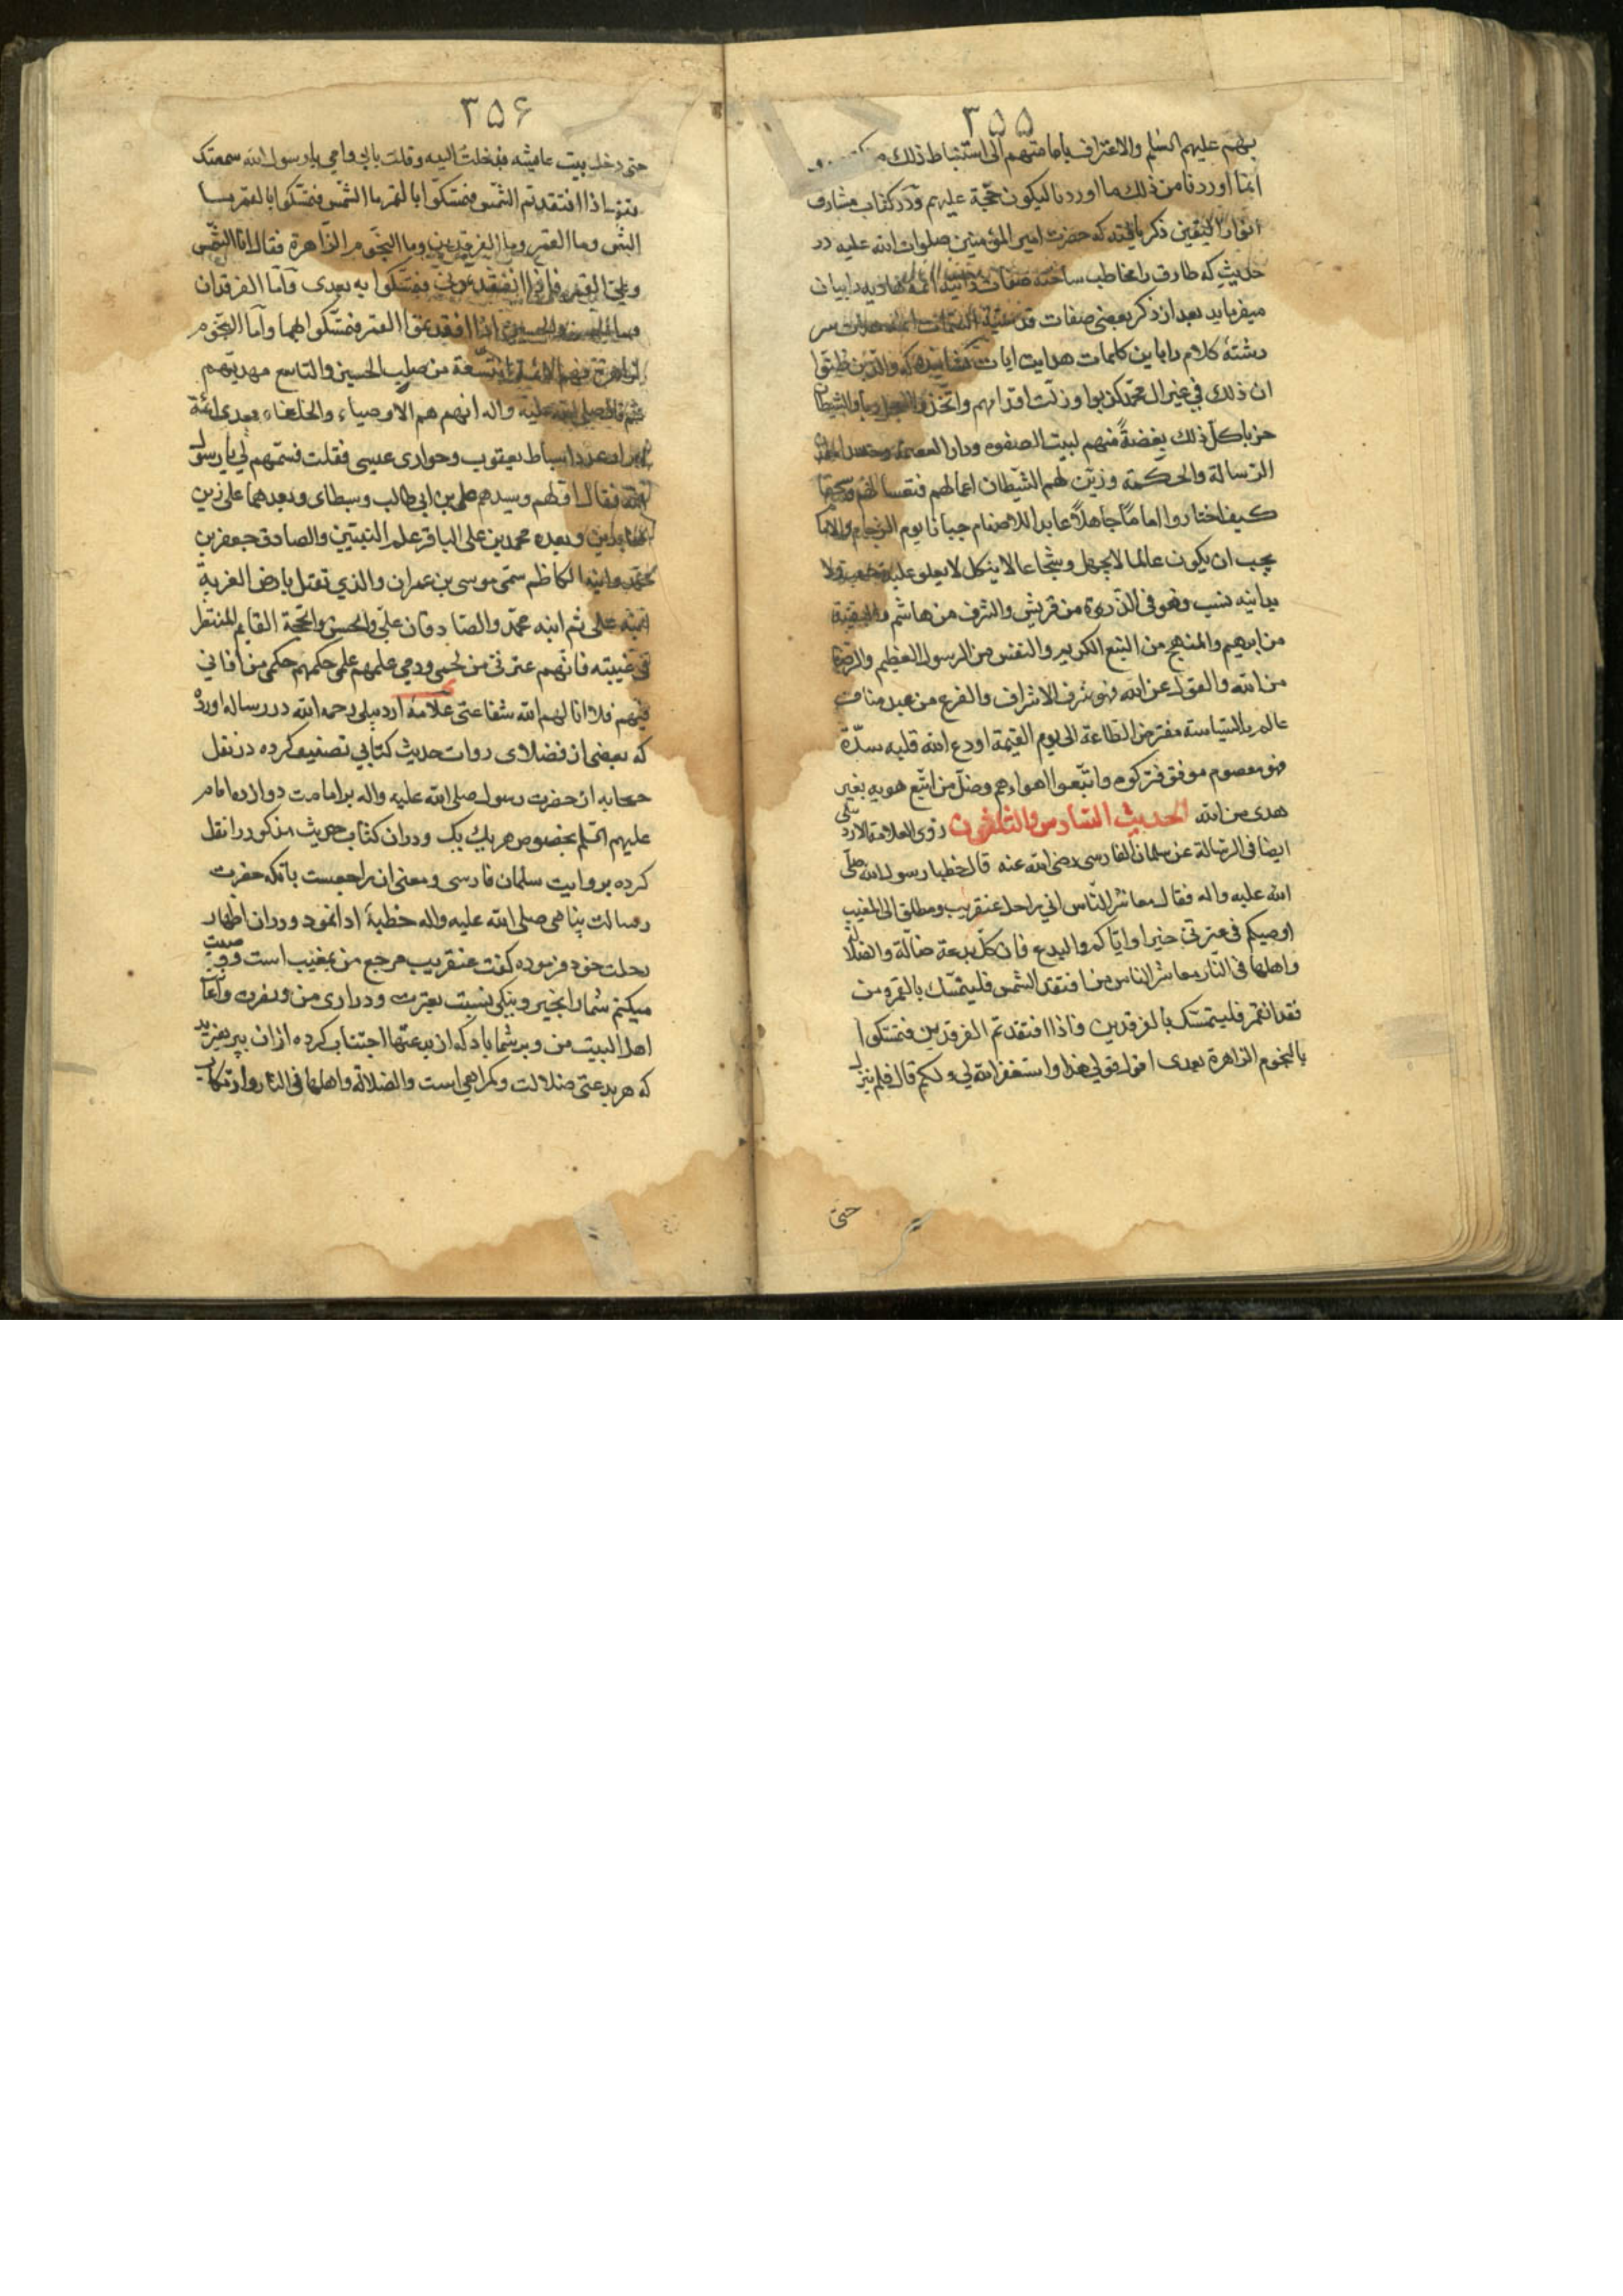 ٣۵۵
بهم عليهم السلم والاعتراف بامامتهم الى استنباط ذلك
انما اوردنا من ذلك ما اوردنا ليكون حجة عليهم ودر كتاب مشارق
انوار اليقين ذكر يافته كه حضرت امير المؤمنين صلوات الله عليه در
حديثي كه طارق را مخاطب ساخته صفات را بيان
ميفرمايد بعد از ذكر بعضى صفات قدسية السمات سر
رشتهٔ كلام را باين كلمات هدايت ايات كشانيده كه والذين ظنوا
ان ذلك في غير ال محمد كذبوا وزلت اقدامهم واتخذوا العجل ربا والشيطان
حزبا كل ذلك بغضة منهم لبيت الصفوه ودار العصمة
الرسالة والحكمة وزين لهم الشيطان اعمالهم فتعسا لهم
كيف اختاروا اماما جاهلا عابدا للاصنام جبانا يوم الزحام والامام
يجب ان يكون عالما لا يجهل وشجاعا لا ينكل لا يعلو عليه حسب ولا
يدانيه نسب وهو فى الذروة من قريش والشرف من هاشم والبقية
من ابرهيم والمنهج من النبع الكريم والنفس من الرسول العظيم والرضا
من الله والقول عن الله فهو شرف الاشراف والفرع من عبد مناف
عالم بالسياسة مفترض الطاعة الى يوم القيمة اودع الله قلبه سرّه
فهو معصوم موفق فتركوه واتبعوا اهواءهم وضل من اتبع هويه بغير
هدى من الله الحديث السادس والثلثون روى العلامة الاردبيلى
ايضا فى الرسالة عن سلمان الفارسى رضى الله عنه قال خطبنا رسول الله صلى
الله عليه واله فقال معاشر الناس اني راحل عنقريب ومطلق الى المغيب
اوصيكم فى عترتى خيرا واياكم والبدع فان كل بدعة ضالة والضلالة
واهلها فى النار معاشر الناس من افتقد الشمس فليتمسك بالقمر ومن
فقد القمر فليتمسك بالفرقدين فاذا افتقدتم الفرقدين فتمسكوا
بالنجوم الزاهرة بعدى اقول قولي هذا واستغفر الله لي ولكم قال فلم يزل
حتى
٣۵۶
حتى دخل بيت عايشه فدخلت اليه وقلت بابي وامي يا رسول الله سمعتك
تقول اذا افتقدتم الشمس فتمسكوا بالقمر ما الشمس فتمسكوا بالقمر ما
الشمس وما القمر وما الفرقدين وما النجوم الزاهرة فقال انا الشمس
وعلي القمر فاذا افتقدتموني فتمسكوا به بعدى واما الفرقدان
فهما الحسن والحسين اذا افقدتم القمر فتمسكوا بهما واما النجوم
الزاهرة فهم الائمة التسعة من صلب الحسين والتاسع مهديهم
ثم قال صلى الله عليه واله انهم هم الاوصياء والخلفاء بعدى ائمة
ابرار عدد اسباط يعقوب وحوارى عيسى فقلت فسمهم لي يا رسول
الله فقال اولهم وسيدهم على بن ابي طالب وسبطاى وبعدهما على زين
العابدين وبعده محمد بن على الباقر علم النبيين والصادق جعفر بن
محمد وابنه الكاظم سمّى موسى بن عمران والذي تقتل بارض الغربة
ابنه على ثم ابنه محمد والصادقان على والحسن والحجة القايم المنتظر
فى غيبته فانهم عترتى من لحمى ودمي علمهم علمى حكمهم حكمى من اذاني
فيهم فلا انا لهم الله شفاعتى علامهٔ اردبيلى رحمه الله در رساله اورده
كه بعضى از فضلاى روات حديث كتابي تصنيف كرده در نقل
صحابه از حضرت رسول صلى الله عليه واله بر امامت دوازده امام
عليهم السلم بخصوص هر يك يك ودران كتاب حديث مذكور را نقل
كرده بروايت سلمان فارسى ومعنى ان راجعست بانكه حضرت
رسالت پناهى صلى الله عليه واله خطبهٔ ادا نمود ودران اظهار
رحلت خود فرموده كفت عنقريب مرجع من بمغيب است وصيت
ميكنم شما را بخير ونيكى نسبت بعترت وذرارى من
اهل البيت من وبر شما باد كه از بدعتها اجتناب كرده از ان بپرهيزيد
كه هر بدعتى ضلالت وكمراهي است والضلالة واهلها فى النار